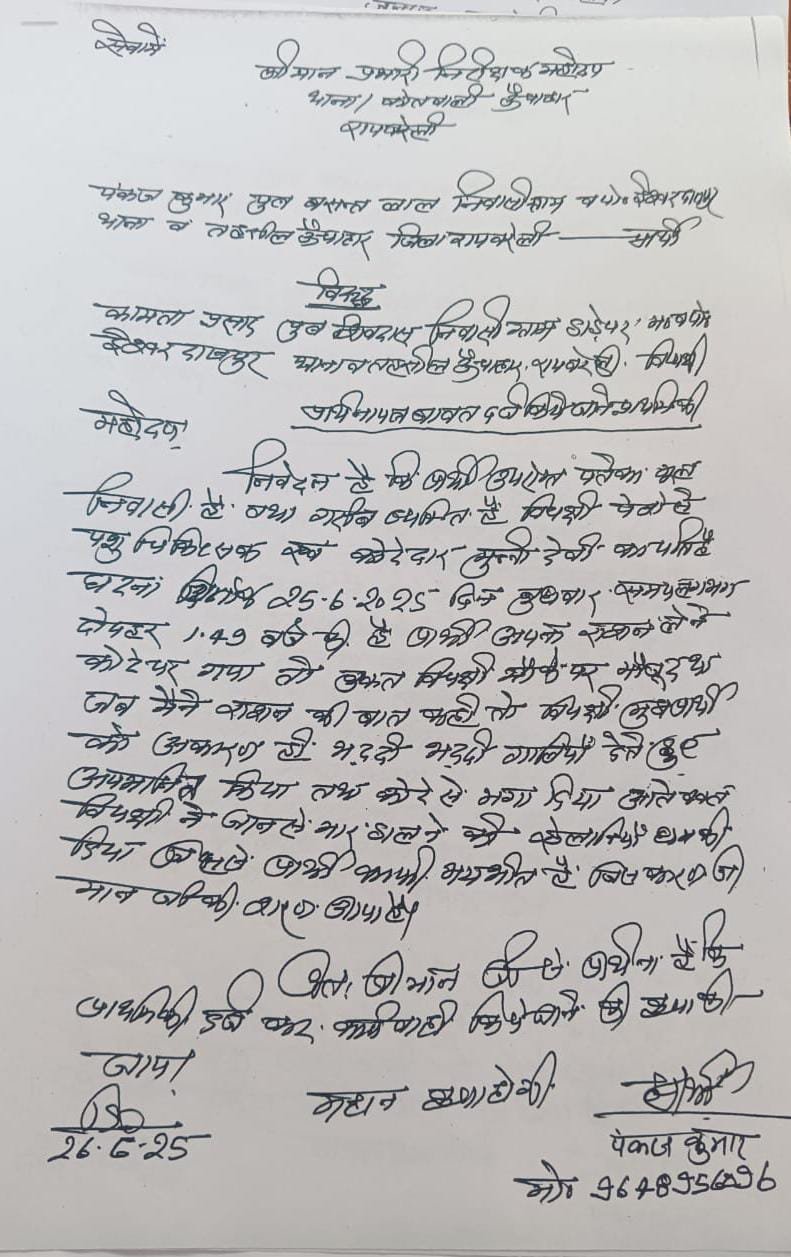 सेवामें
श्रीमान प्रभारी निरीक्षक महोदय
थाना/ कोतवाली ऊँचाहार
रायबरेली
पंकज कुमार पुत्र बसन्त लाल निवासी ग्राम व पो० ईश्वरदासपुर
थाना व तहसील ऊँचाहार जिला रायबरेली — प्रार्थी
विरुद्ध
कामता प्रसाद पुत्र शिवदास निवासी ग्राम व पो०
ईश्वरदासपुर थाना व तहसील ऊँचाहार, रायबरेली. विपक्षी
प्रार्थनापत्र बावत दर्ज किये जाने प्राथमिकी
महोदय
निवेदन है कि प्रार्थी उपरोक्त पते का मूल
निवासी है तथा गरीब व्यक्ति है विपक्षी पेशे से
पशु चिकित्सक एवं कोटेदार मुन्नी देवी का पति है
घटना दिनांक 25.6.2025 दिन बुधवार समय लगभग
दोपहर 1.49 बजे की है प्रार्थी अपना राशन लेने
कोटे पर गया तो उक्त विपक्षी मौके पर मौजूद था
जब मैने राशन की बात कही तो विपक्षी मुझ प्रार्थी
को अकारण ही भद्दी भद्दी गालियाँ देते हुए
अपमानित किया तथा कोटे से भगा दिया आते वक्त
विपक्षी ने जान से मार डालने की धमकी
दिया जिससे प्रार्थी काफी भयभीत है जिस कारण श्री
मान जी की शरण आया है।
अतः श्रीमान जी से प्रार्थना है कि
प्राथमिकी दर्ज कर कार्यवाही किये जाने की कृपा की
जाय।
महान कृपा होगी
प्रार्थी
26.6.25
पंकज कुमार
मो०